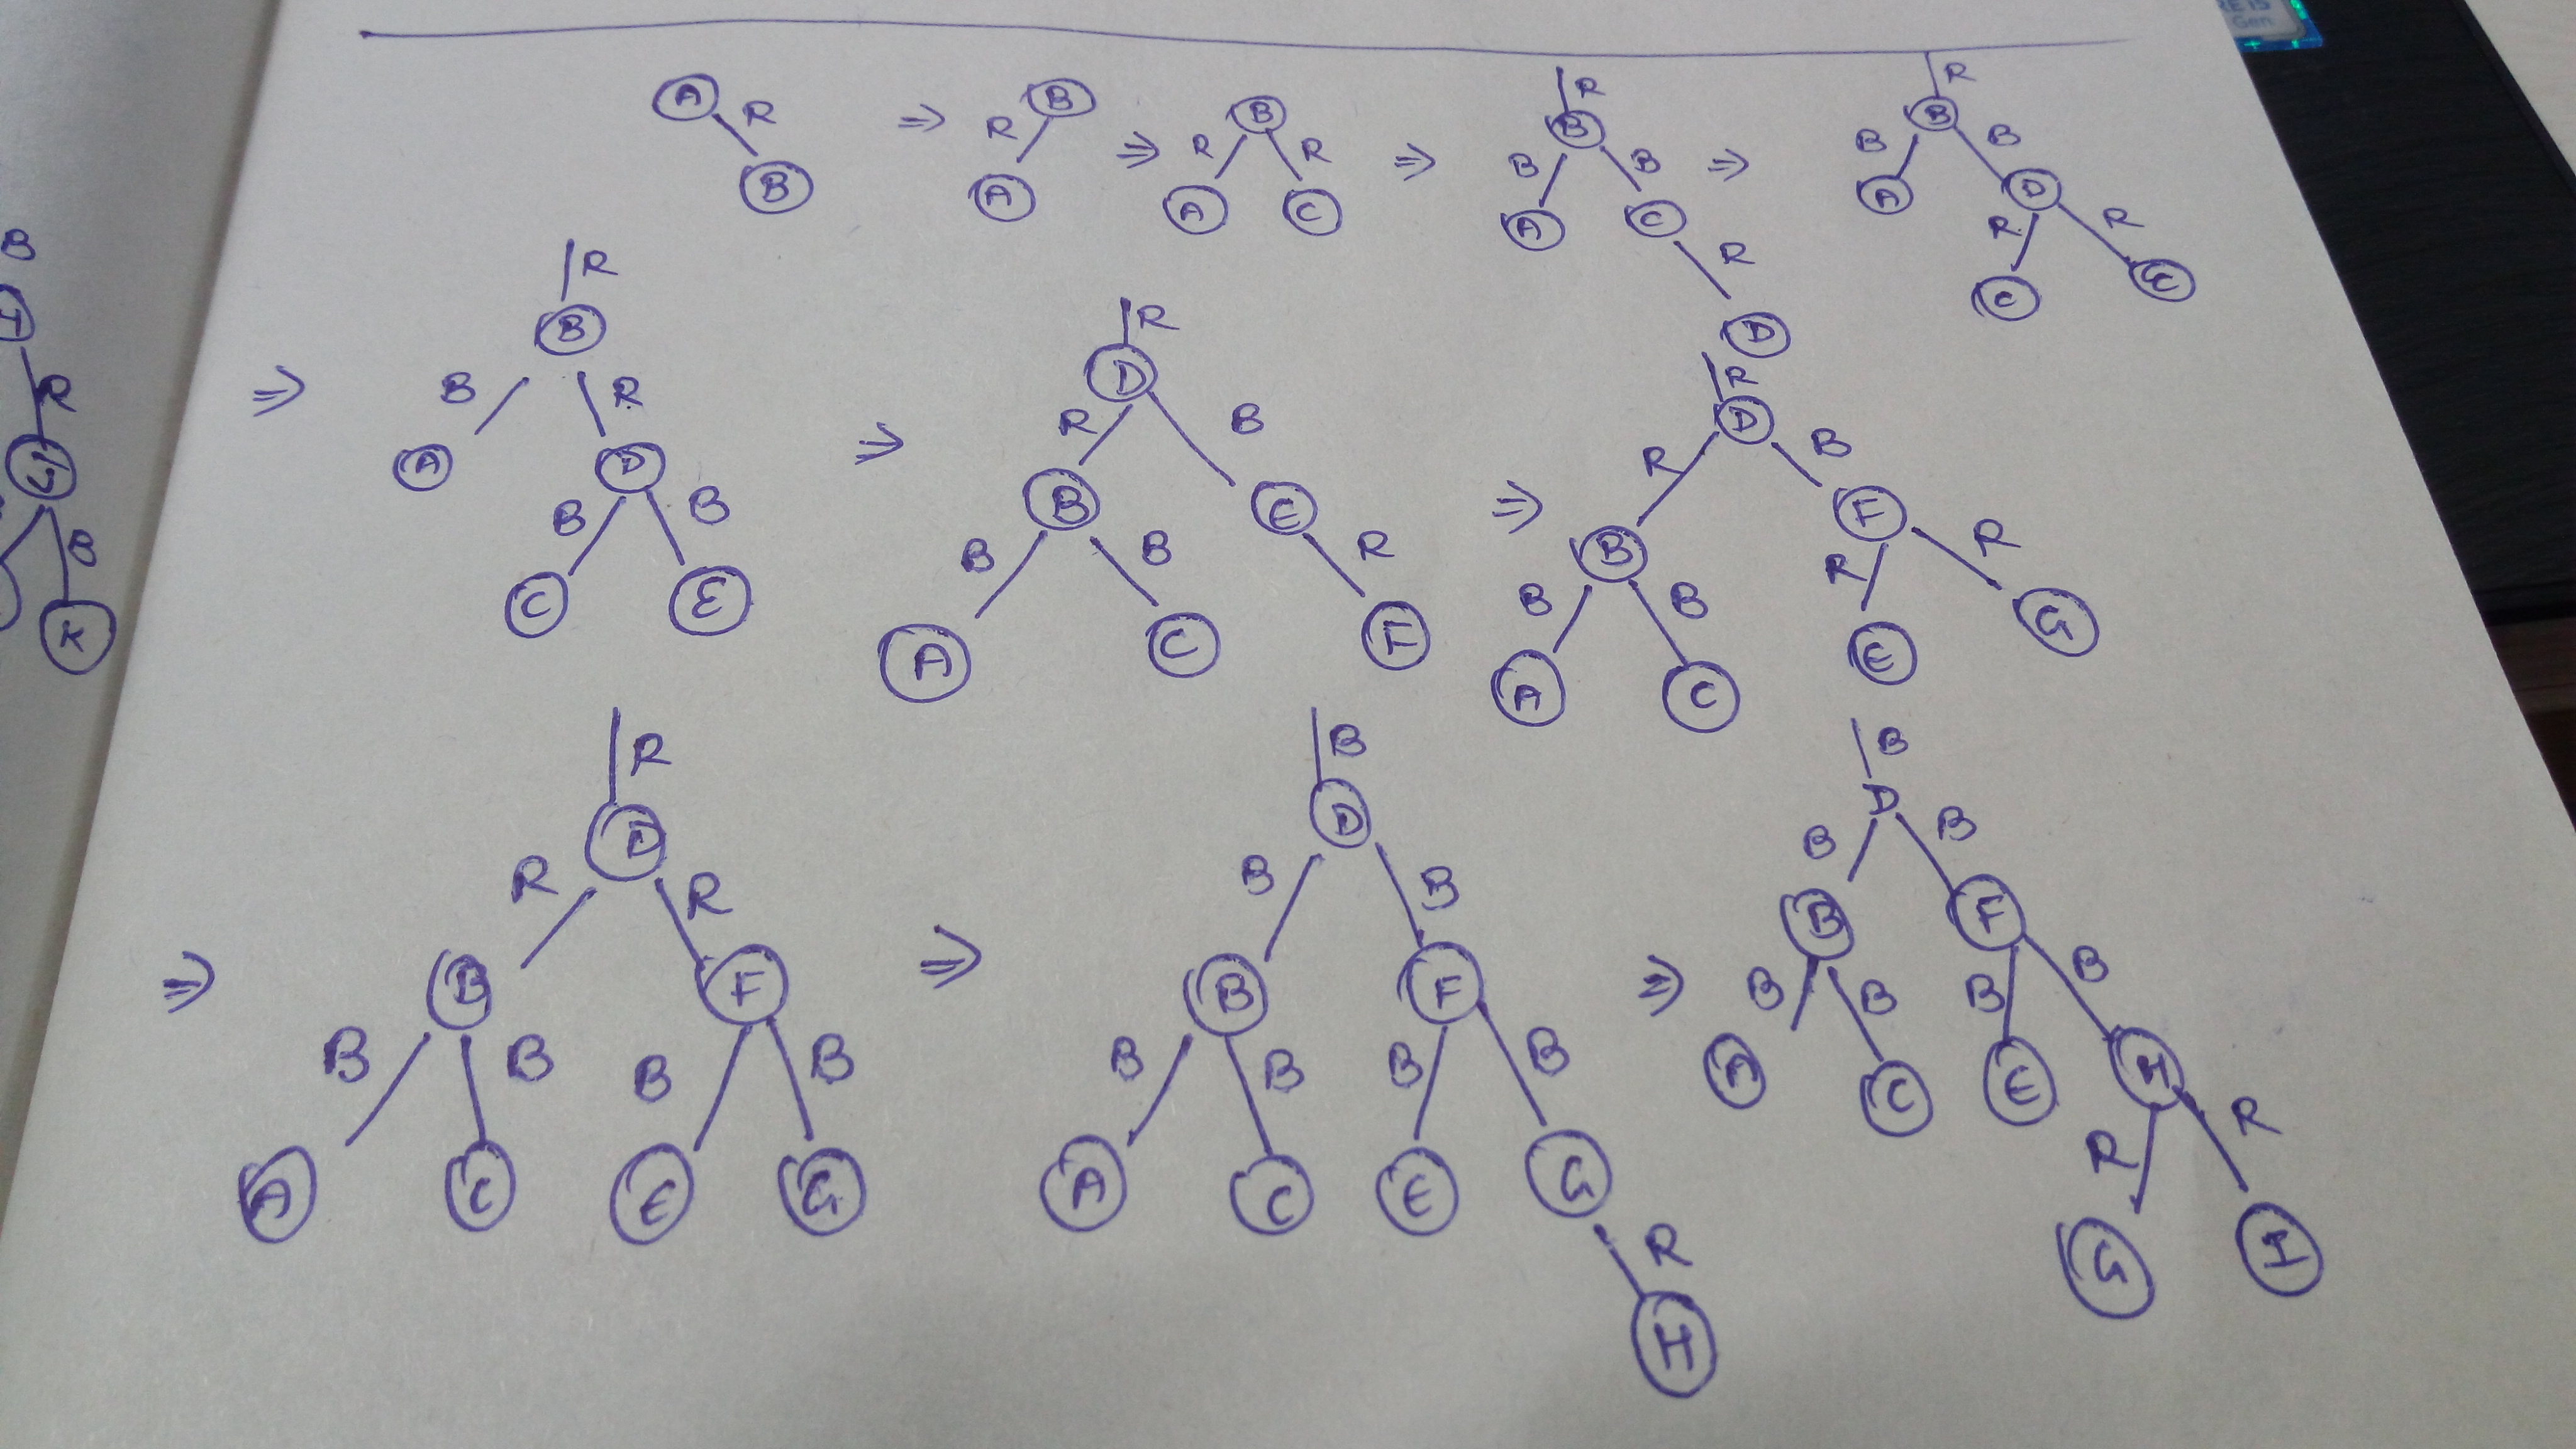 A R B
⇒ B R A
⇒ B R R A C
⇒ R B B B A C R D
⇒ R B B B A D R R C E
⇒ R B B R A D B B C E
⇒ R D R B B E B B R A C F
⇒ R D R B B F B B R R A C E G
⇒ R D R R B F B B B B A C E G
⇒ B D B B B F B B B B A C E G R H
⇒ B D B B B F B B B B A C E H R R G I
B
R
B
K
RE IS
Gen